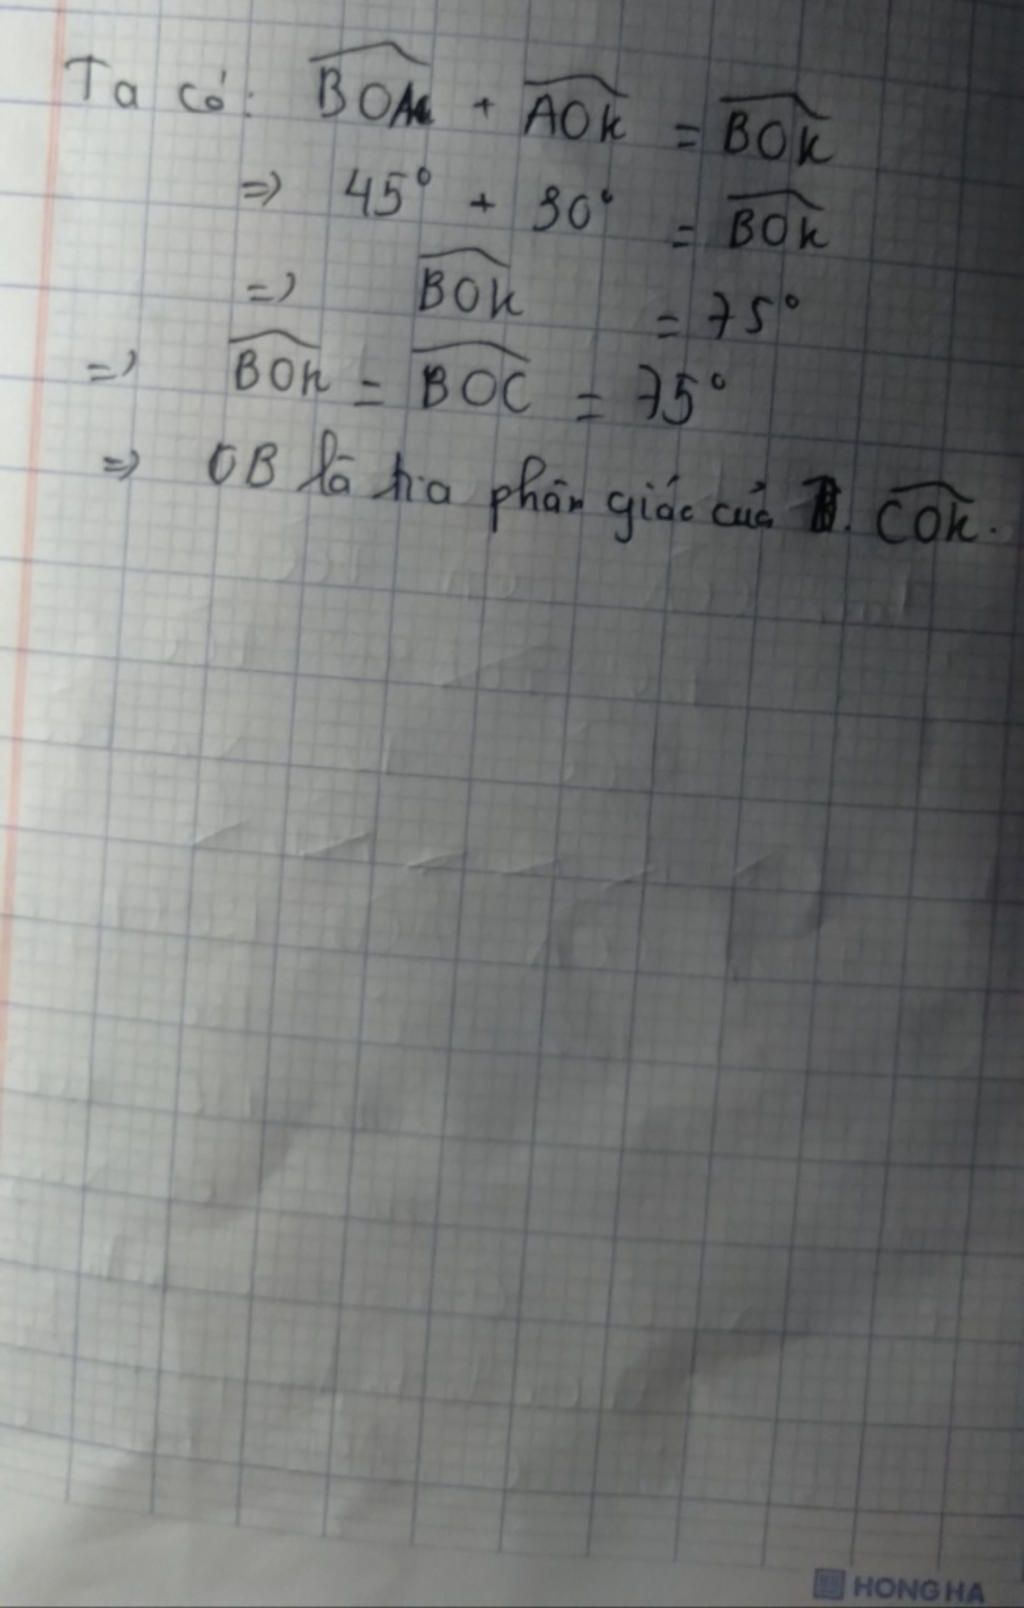 Ta có: \widehat{BOA} + \widehat{AOK} = \widehat{BOK}
=> 45° + 30° = \widehat{BOK}
=> \widehat{BOK} = 75°
=> \widehat{BOK} = \widehat{BOC} = 75°
=> OB là tia phân giác của \widehat{COK}.
HONG HA